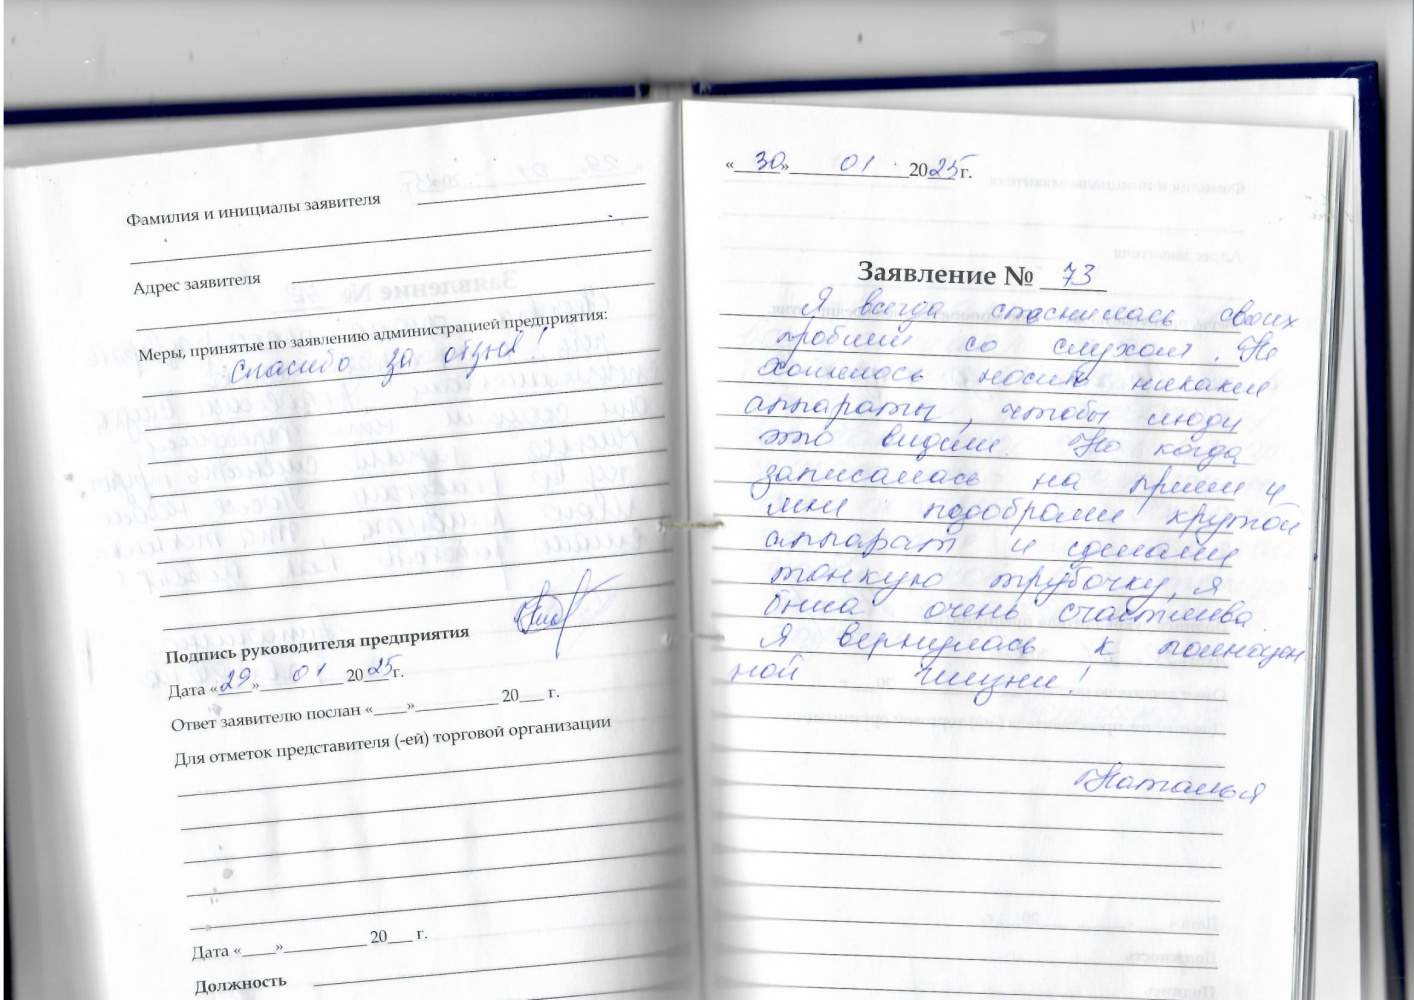 Фамилия и инициалы заявителя
Адрес заявителя
Меры, принятые по заявлению администрацией предприятия:
спасибо за отзыв!
Подпись руководителя предприятия
Дата «29» 01 2025г.
Ответ заявителю послан «____»__________ 20___ г.
Для отметок представителя (-ей) торговой организации
Дата «____»__________ 20___ г.
Должность
«30» 01 2025г.
Заявление № 73
Я всегда стеснялась своих
проблем со слухом. Не
хотелось носить никакие
аппараты, чтобы люди
это видели. Но когда
записалась на прием и
мне подобрали крутой
аппарат и сделали
тонкую трубочку, я
была очень счастлива.
Я вернулась к полноцен
ной жизни!
Наталья